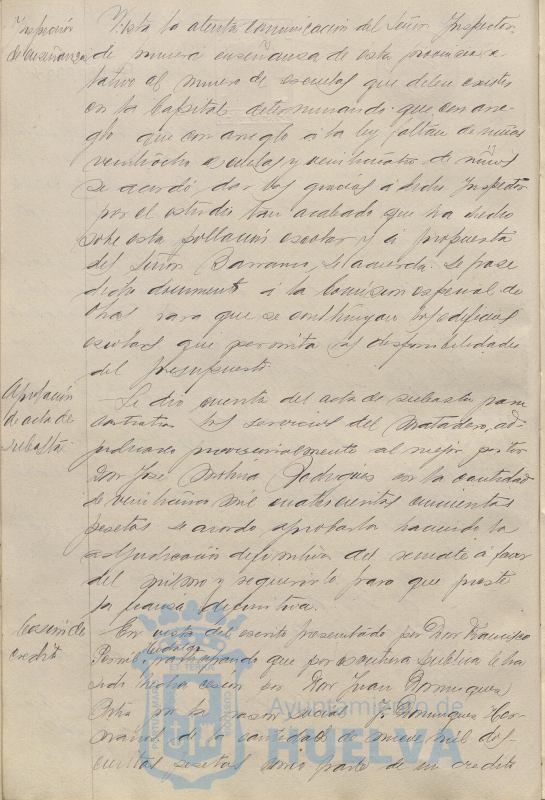 Inspección
de Enseñanza
Vista la atenta comunicación del Señor Inspector
de primera enseñanza de esta provincia re-
lativo al número de escuelas que deben existir
en la Capital determinando que con arre-
glo que con arreglo a la ley faltan de niñas
veintiocho escuelas y veinticuatro de niños
se acordó dar las gracias a dicho Inspector
por el estudio tan acabado que ha hecho
sobre esta población escolar y a propuesta
del Señor Barranco, se acuerda. Se pase
dicho documento a la Comisión especial de
para que se construyan los edificios
escolares que permita las disponibilidades
del presupuesto.
Aprobación
de acta de
subasta
Se dio cuenta del acta de subasta para
contratar los servicios del Matadero, ad-
judicado provisionalmente al mejor postor
Don José Rodriguez en la cantidad
de mil cuatrocientas cincuenta
pesetas se acordó aprobarla haciendo la
adjudicación definitiva del remate a favor
del mismo y requerirle para que preste
la fianza definitiva.
Cesión de
credito
En vista del escrito presentado por Don Francisco
Hidalgo
participando que por escritura publica le ha
sido hecha cesión por Don Juan Dominguez
en la razón social J. Dominguez Her-
manos de la cantidad de nueve mil dos
cientas pesetas como parte de un credito
Ayuntamiento de
HUELVA